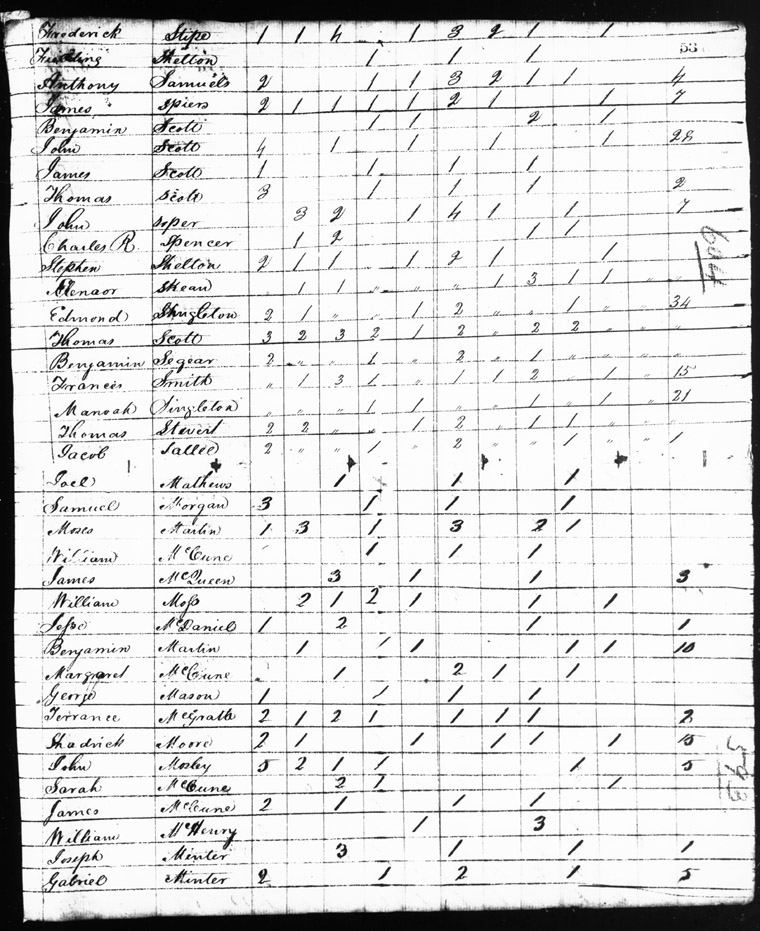 Frederick Stipe 1 1 4 1 3 2 1 1
53
Shelton 1 1 1
Anthony Samuels 2 1 1 3 2 1 1 4
James Spiers 2 1 1 1 1 2 1 1 7
Benjamin Scott 1 1 2 1
John Scott 4 1 1 1 1 28
James Scott 1 1 1 1
Thomas Scott 3 1 1 1 2
John Soper 3 2 1 4 1 1 7
Charles R Spencer 1 2 1 1
Stephen Shelton 2 1 1 1 2 1 1
Skean 1 1 " " " " 1 3 1 1 " "
Edmond Shngleton 2 1 " " 1 2 " " 1 " " 34
Thomas Scott 3 2 3 2 1 2 " 2 2 " " "
Benjamin Segear 2 " " 1 " 2 " 1 " " " "
Frances Smith " 1 3 1 " 1 1 2 " 1 " 15
Manoah Singleton " " " 1 1 " " 1 " 1 " 21
Thomas Stevert 2 2 " " 1 2 " 1 1 " "
Jacob Sallee 2 " " 1 " 2 " " 1 " " 1
Joel Mathews 1 1 1
Samuel Morgan 3 1 1 1
Moses Martin 1 3 1 3 2 1
William McCune 1 1 1
James McQueen 3 1 1 3
William Moss 2 1 2 1 1 1
Jesse McDaniel 1 2 1 1
Benjamin Martin 1 1 1 1 1 10
Margaret McCune 1 2 1 1
George Mason 1 1 1 1
Terrance McGrath 2 1 2 1 1 1 1 2
Shadrick Moore 2 1 1 1 1 1 15
John Mosley 5 2 1 1 1 5
Sarah McCune 2 1 1
James McCune 2 1 1 1
William McHenry 1 3
Joseph Minter 3 1 1 1
Gabriel Minter 2 1 2 1 5
593